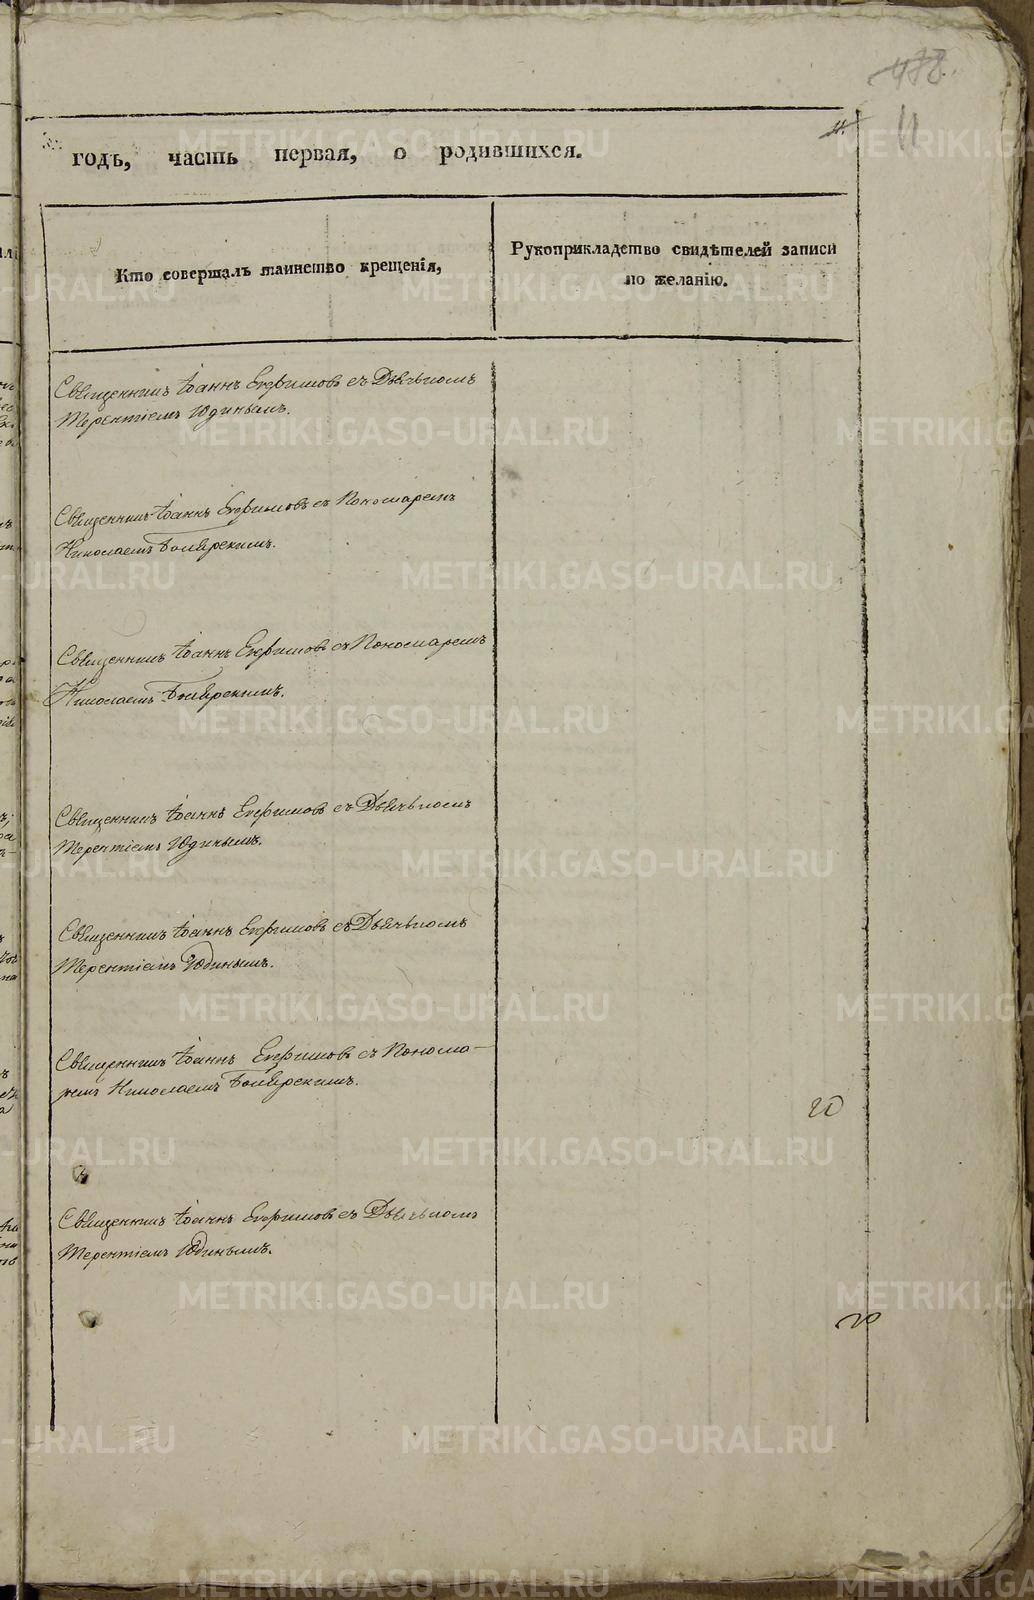 478.
11
11.
годъ, часть первая, о родившихся.
Кто совершалъ таинство крещенія,
Рукоприкладство свидѣтелей записи
по желанію.
Священникъ Іоаннъ Ехримовъ съ Дьячькомъ
Терентіемъ Юдинымъ.
Священникъ Іоаннъ Ехримовъ съ Пономаремъ
Николаемъ Боярскимъ.
Священникъ Іоаннъ Ехримовъ съ Пономаремъ
Николаемъ Боярскимъ.
Священникъ Іоаннъ Ехримовъ съ Дьячькомъ
Терентіемъ Юдинымъ.
Священникъ Іоаннъ Ехримовъ съ Дьячькомъ
Терентіемъ Юдинымъ.
Священникъ Іоаннъ Ехримовъ съ Понома-
ремъ Николаемъ Боярскимъ.
Священникъ Іоаннъ Ехримовъ съ Дьячькомъ
Терентіемъ Юдинымъ.
METRIKI.GASO-URAL.RU